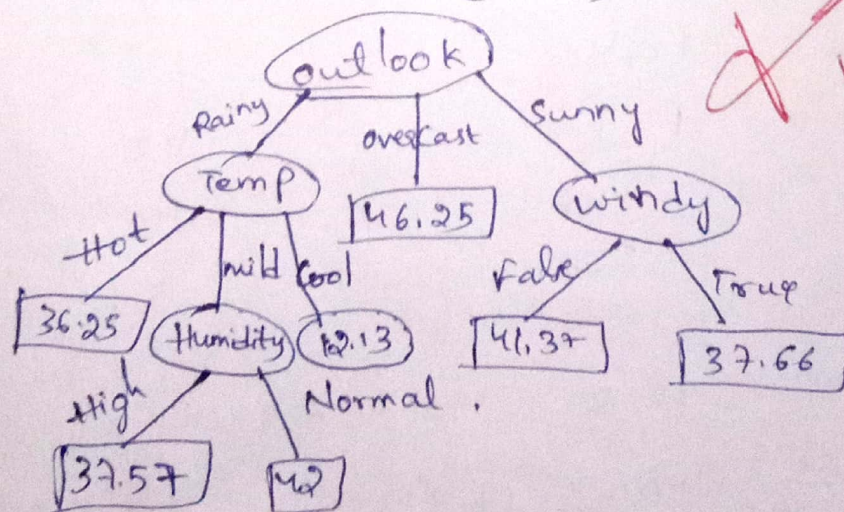 outlook
Rainy overcast Sunny
Temp 46.25 Windy
Hot mild Cool False True
36.25 Humidity 42.13 41.37 37.66
High Normal.
37.57 42